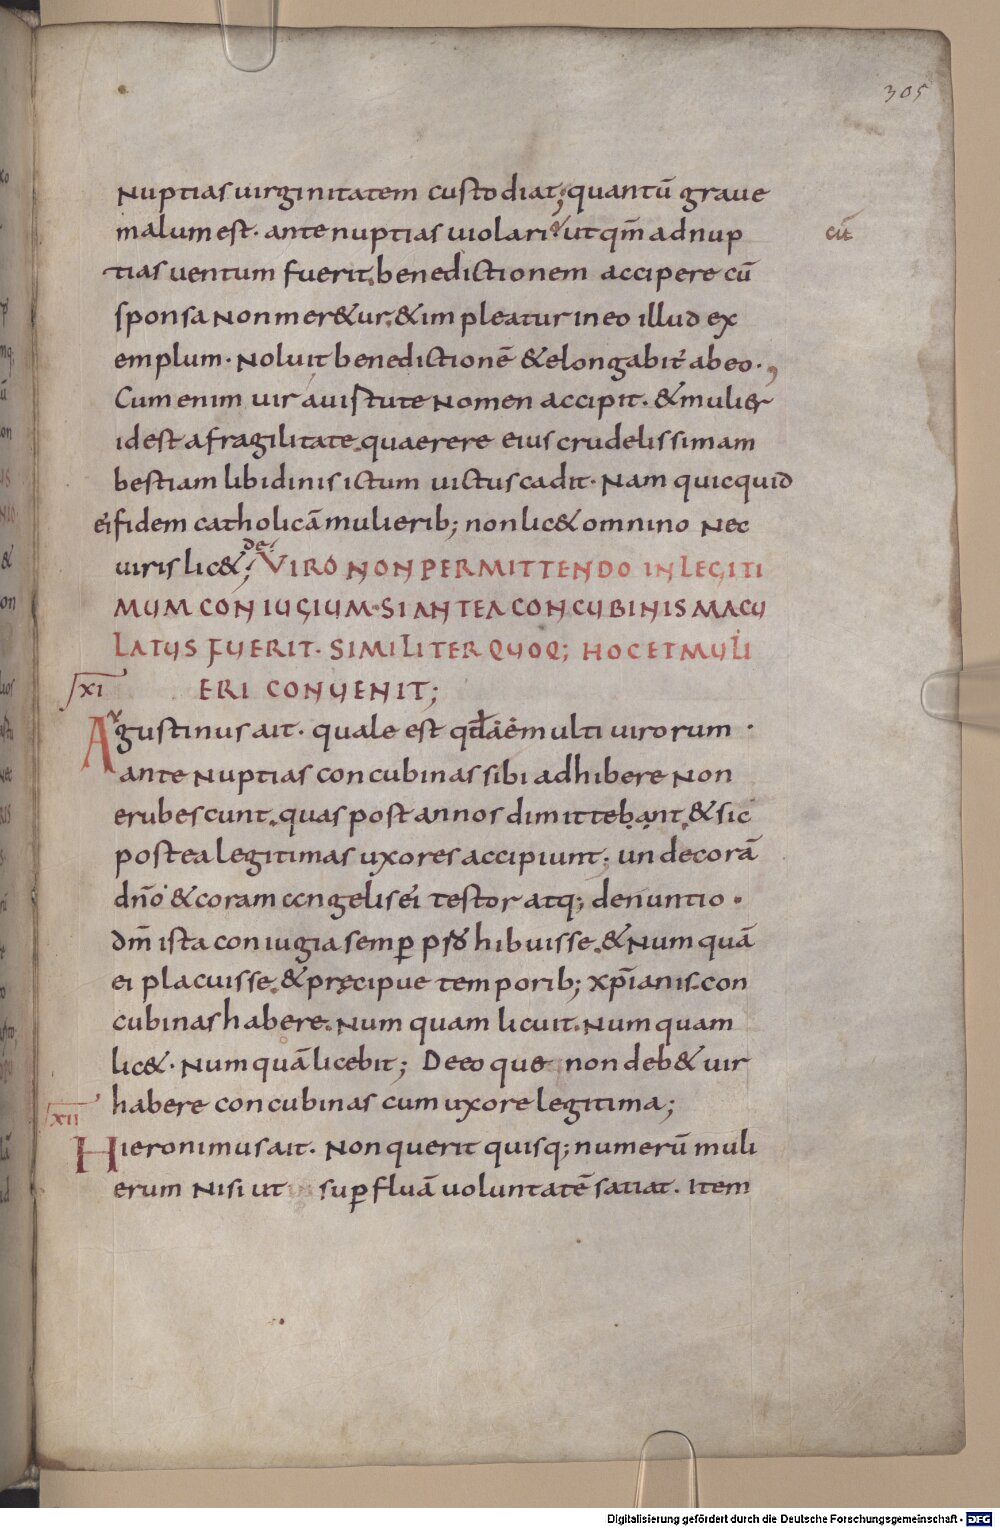 305
nuptias uirginitatem custodiat; quantū graue
malum est. ante nuptias uiolari & ut qm̄ ad nup
cū
tias uentum fuerit. benedictionem accipere cū
sponsa non mer&ur. & impleatur in eo illud ex
emplum. Noluit benedictionē & elongabit᷒ ab eo.,
Cum enim uir auistute nomen accipit. & mulier
id est a fragilitate. quaerere eius crudelissimam
bestiam libidinis ictum uictus cadit. Nam quicquid
ei fidem catholicā mulierib; non lic& omnino nec
uiris lic&; de VIRO NON PERMITTENDO IN LEGITI
MUM CONIUGIUM. SI ANTEA CONCUBINIS MACU
LATUS FUERIT. SIMILITER QUOQ; HOC ET MULI
XI ERI CONUENIT;
Agustinus ait. quale est qd̄ multi uirorum
ante nuptias concubinas sibi adhibere non
erubescunt. quas post annos dimittebant. & sic
postea legitimas uxores accipiunt. unde corā
dnō & coram angelis ei testor atq; denuntio.
dm̄ ista coniugia semꝑ prohibuisse. & numquā
ei placuisse. & pręcipue temporib; xp̄ianis. con
cubinas habere. Numquam licuit. Numquam
lic&. Numquā licebit; De eo que non deb& uir
habere concubinas cum uxore legitima;
XII
Hieronimus ait. Non querit quisq; numerū muli
erum nisi ut suꝑfluā uoluntatē satiat. Item
Digitalisierung gefördert durch die Deutsche Forschungsgemeinschaft - DFG